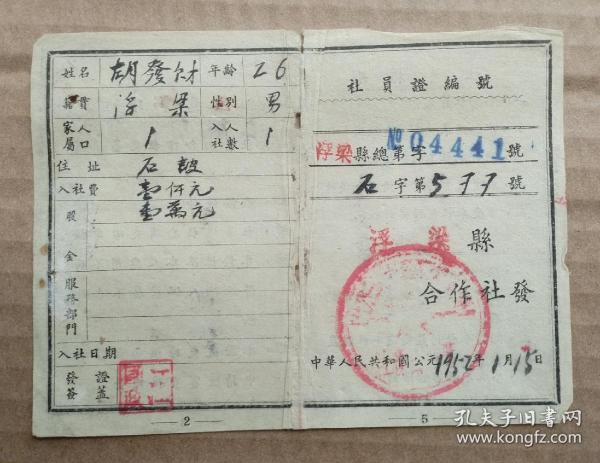 姓名 胡發財 年齡 26
籍貫 浮梁 性別 男
家屬人口 1 入社人數 1
住址 石
入社費 壹仟元
股金 壹萬元
服務部門
入社日期
發證簽蓋
— 2 —
社員證編號
浮梁縣總第字№04441號
石字第577號
浮梁縣
合作社發
中華人民共和國公元1952年1月15日
— 5 —
孔夫子旧书网
www.kongfz.com